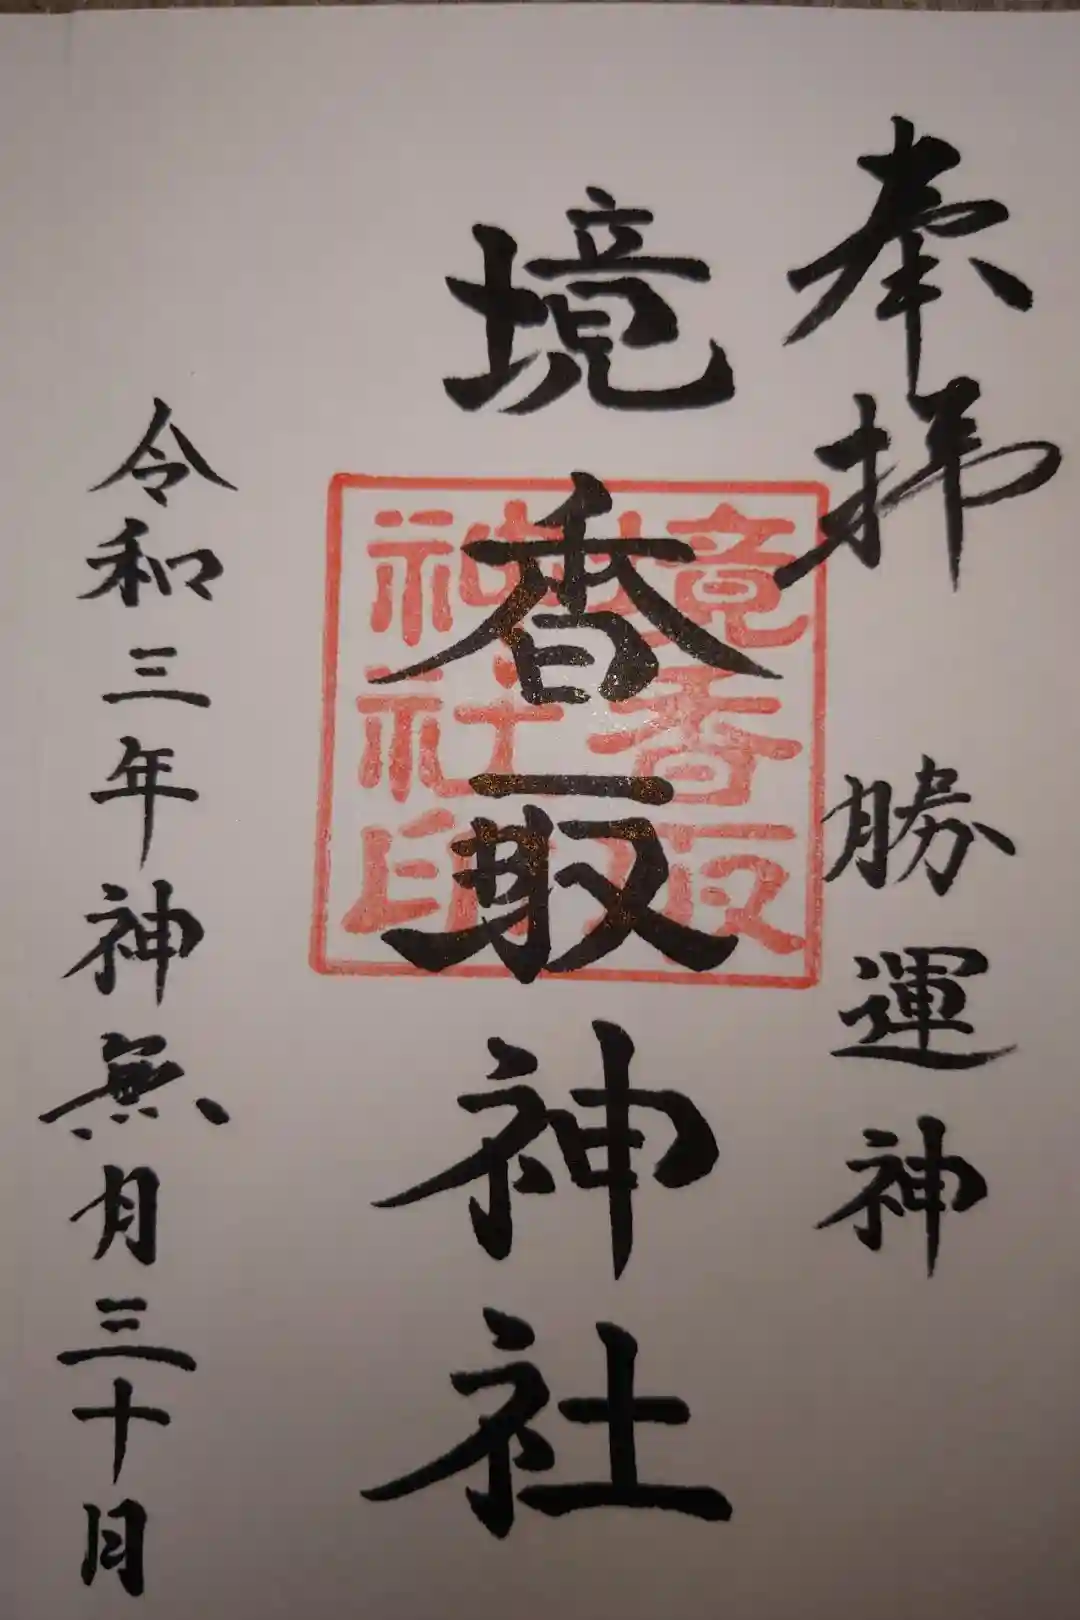 奉拝 勝運神
境香取神社
境香取
神社印
令和三年神無月三十日